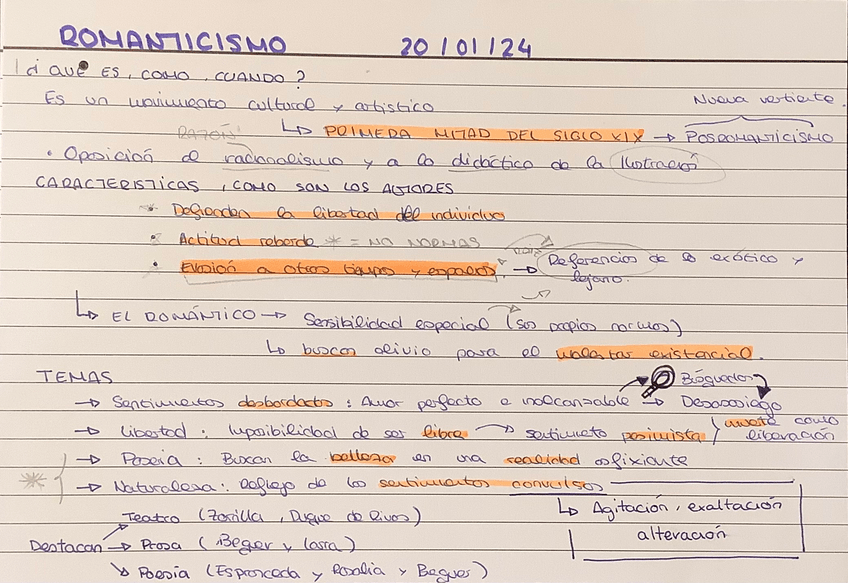 ROMANTICISMO 20/01/24
¿QUÉ ES, COMO, CUANDO?
Es un movimiento cultural y artistico Nueva vertiente.
RAZÓN ↳ PRIMERA MITAD DEL SIGLO XIX → POSROMANTICISMO
• Oposición al racionalismo y a lo didáctico de la Ilustración
CARACTERISTICAS, COMO SON LOS AUTORES
* Defienden la libertad del individuo
* Actitud rebelde * = NO NORMAS
• Evasión a otros tiempos y espacios. → Referencias de lo exótico y
lejano.
↳ EL ROMÁNTICO → Sensibilidad especial (sus propias normas)
↳ buscan alivio para el malestar existencial.
TEMAS Búsqueda
→ Sentimientos desbordados: Amor perfecto e inalcanzable → Desasosiego
→ Libertad: Imposibilidad de ser libre → sentimiento pesimista } muerte como
liberación
→ Poesia: Buscan la belleza en una realidad asfixiante
* { → Naturaleza: Reflejo de los sentimientos convulsos
Teatro (Zorrilla, Duque de Rivas) ↳ Agitación, exaltación
alteración
Destacan → Prosa (Béquer y Larra)
↘ Poesia (Espronceda y Rosalia y Bequer)